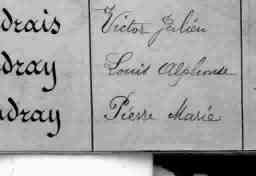 drais Victor Julien
dray Louis Alphonse
dray Pierre Marie